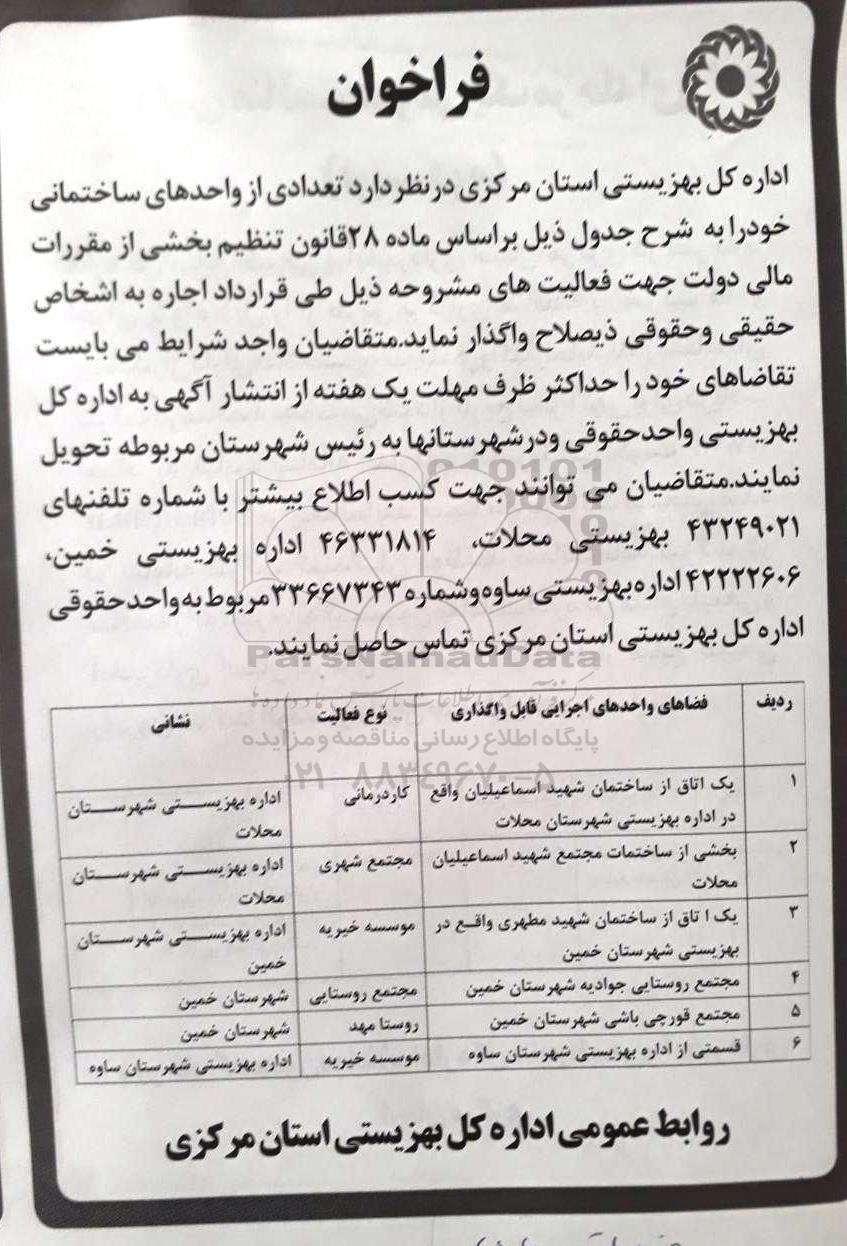 فراخوان
اداره کل بهزیستی استان مرکزی درنظر دارد تعدادی از واحدهای ساختمانی
خودرا به شرح جدول ذیل براساس ماده ۲۸قانون تنظیم بخشی از مقررات
مالی دولت جهت فعالیت های مشروحه ذیل طی قرارداد اجاره به اشخاص
حقیقی وحقوقی ذیصلاح واگذار نماید.متقاضیان واجد شرایط می بایست
تقاضاهای خود را حداکثر ظرف مهلت یک هفته از انتشار آگهی به اداره کل
بهزیستی واحدحقوقی ودرشهرستانها به رئیس شهرستان مربوطه تحویل
نمایند.متقاضیان می توانند جهت کسب اطلاع بیشتر با شماره تلفنهای
۴۳۲۴۹۰۲۱ بهزیستی محلات، ۴۶۳۳۱۸۱۴ اداره بهزیستی خمین،
۴۲۲۲۲۶۰۶ اداره بهزیستی ساوه وشماره ۳۳۶۶۷۳۴۳ مربوط به واحدحقوقی
اداره کل بهزیستی استان مرکزی تماس حاصل نمایند.
ParsNamadData
پایگاه اطلاع رسانی مناقصه و مزایده
۰۲۱ ۸۸۳۴۹۶۷۰-۵
ردیف فضاهای واحدهای اجرایی قابل واگذاری نوع فعالیت نشانی
۱ یک اتاق از ساختمان شهید اسماعیلیان واقع کاردرمانی اداره بهزیستی شهرستان
در اداره بهزیستی شهرستان محلات محلات
۲ بخشی از ساختمات مجتمع شهید اسماعیلیان مجتمع شهری اداره بهزیستی شهرستان
محلات محلات
۳ یک ا تاق از ساختمان شهید مطهری واقع در موسسه خیریه اداره بهزیستی شهرستان
بهزیستی شهرستان خمین خمین
۴ مجتمع روستایی جوادیه شهرستان خمین مجتمع روستایی شهرستان خمین
۵ مجتمع قورچی باشی شهرستان خمین روستا مهد شهرستان خمین
۶ قسمتی از اداره بهزیستی شهرستان ساوه موسسه خیریه اداره بهزیستی شهرستان ساوه
روابط عمومی اداره کل بهزیستی استان مرکزی